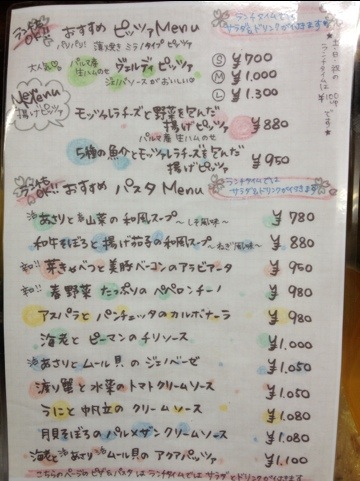 ランチも OK!! おすすめ ピッツァ Menu
ランチタイムでは サラダ&ドリンクが付きます!!
パリパリ! 薄焼き ミラノタイプ ピッツァ
大人気◎ パルマ産 生ハムのせ ヴェルディ ピッツァ
Ⓢ ¥700
Ⓜ ¥1.000
Ⓛ ¥1.300
New Menu 揚げピッツァ
モッツァレラチーズと野菜を包んだ
揚げピッツァ ¥880
パルマ産 生ハムのせ
5種の魚介とモッツァレラチーズを包んだ
揚げピッツァ ¥950
ランチも OK!! おすすめ パスタ Menu
ランチタイムでは サラダ&ドリンクが付きます!!
あさりと山菜の和風スープ ¥780
和牛そぼろと揚げ茄子の和風スープ〜ねぎ風味〜 ¥880
菜きゃべつと美豚ベーコンのアラビアータ ¥950
春野菜 たっぷりの ペペロンチーノ ¥980
アスパラと パンチェッタの カルボナーラ ¥980
海老と ピーマンの チリソース ¥1.000
あさりと ムール貝の ジェノベーゼ ¥1.050
渡り蟹と 水菜の トマトクリームソース ¥1.050
うにと 帆立の クリームソース ¥1.080
月見そぼろの パルメザンクリームソース ¥1.080
海老と あさりとムール貝の アクアパッツァ ¥1.100
こちらのページのピザ&パスタは ランチタイムでは サラダとドリンクが付きます